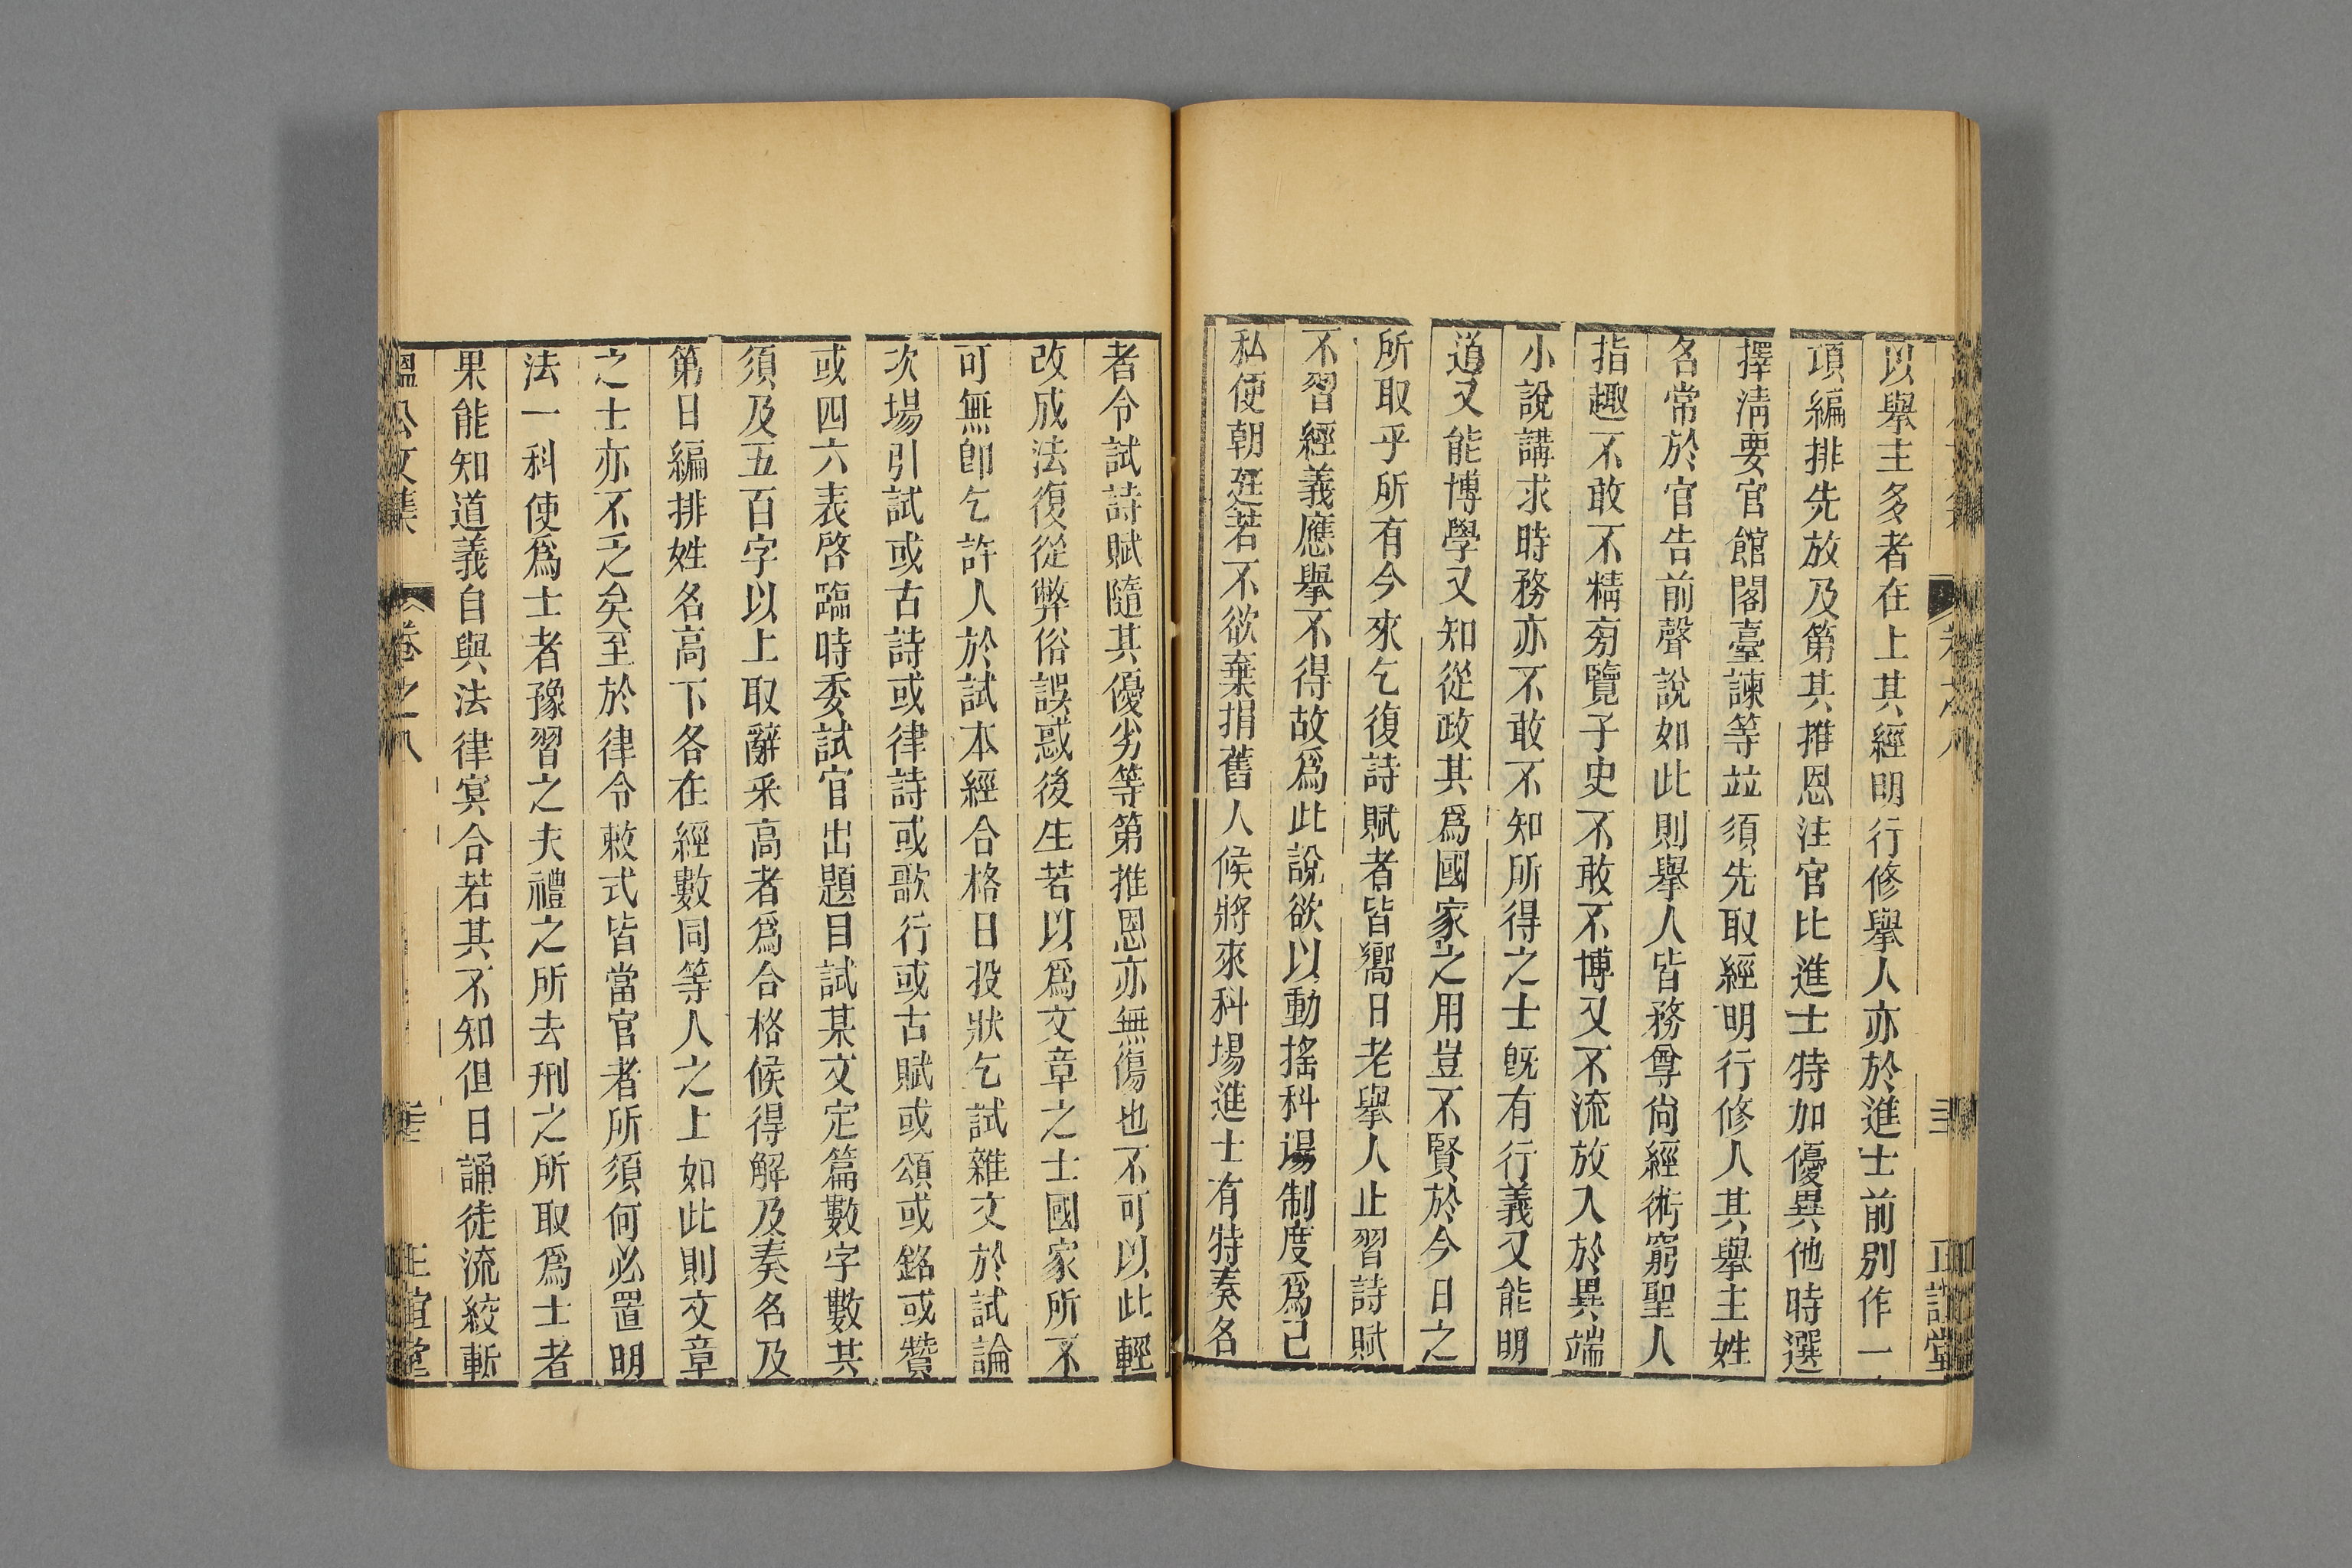 以舉主多者在上其經明行修舉人亦於進士前別作一
項編排先放及第其推恩注官比進士特加優異他時選
擇清要官館閣臺諫等並須先取經明行修人其舉主姓
名常於官告前聲說如此則舉人皆務尊尚經術窮聖人
指趣不敢不精旁覽子史不敢不博又不流放入於異端
小說講求時務亦不敢不知所得之士旣有行義又能明
道又能博學又知從政其爲國家之用豈不賢於今日之
所取乎所有今來乞復詩賦者皆嚮日老舉人止習詩賦
不習經義應舉不得故爲此說欲以動搖科場制度爲己
私便朝廷若不欲棄捐舊人候將來科場進士有特奏名
者令試詩賦隨其優劣等第推恩亦無傷也不可以此輕
改成法復從弊俗誤惑後生若以爲文章之士國家所不
可無卽乞許人於試本經合格日投狀乞試雜文於試論
次場引試或古詩或律詩或歌行或古賦或頌或銘或贊
或四六表啓臨時委試官出題目試某文定篇數字數共
須及五百字以上取辭采高者爲合格候得解及奏名及
第日編排姓名高下各在經數同等人之上如此則文章
之士亦不乏矣至於律令敕式皆當官者所須何必置明
法一科使爲士者豫習之夫禮之所去刑之所取爲士者
果能知道義自與法律冥合若其不知但日誦徒流絞斬
溫公文集
卷之八
正誼堂